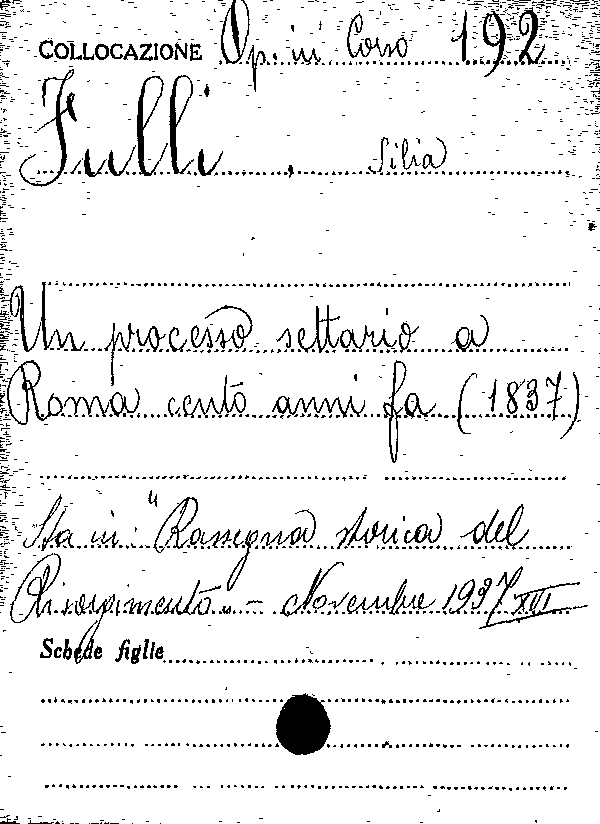 COLLOCAZIONE Op. in Corso 192
Fulli, Silia
Un processo settario a
Roma cento anni fa (1837)
Sta in: "Rassegna storica del
Risorgimento" - Novembre 1937 XVI
Schede figlie